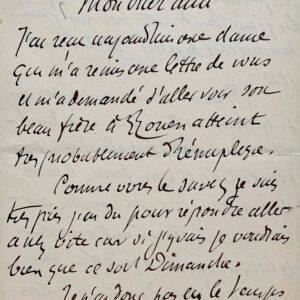 Mon cher ami
J'ai reçu aujourd'hui une dame
qui m'a remis une lettre de vous
et m'a demandé d'aller voir son
beau frère à Rouen atteint
très probablement d'hémiplégie.
Comme vous le savez je suis
très pris
pour répondre
assez vite car si j'y vais je voudrais
bien que ce soit Dimanche.
Je n'ai donc pas eu le temps